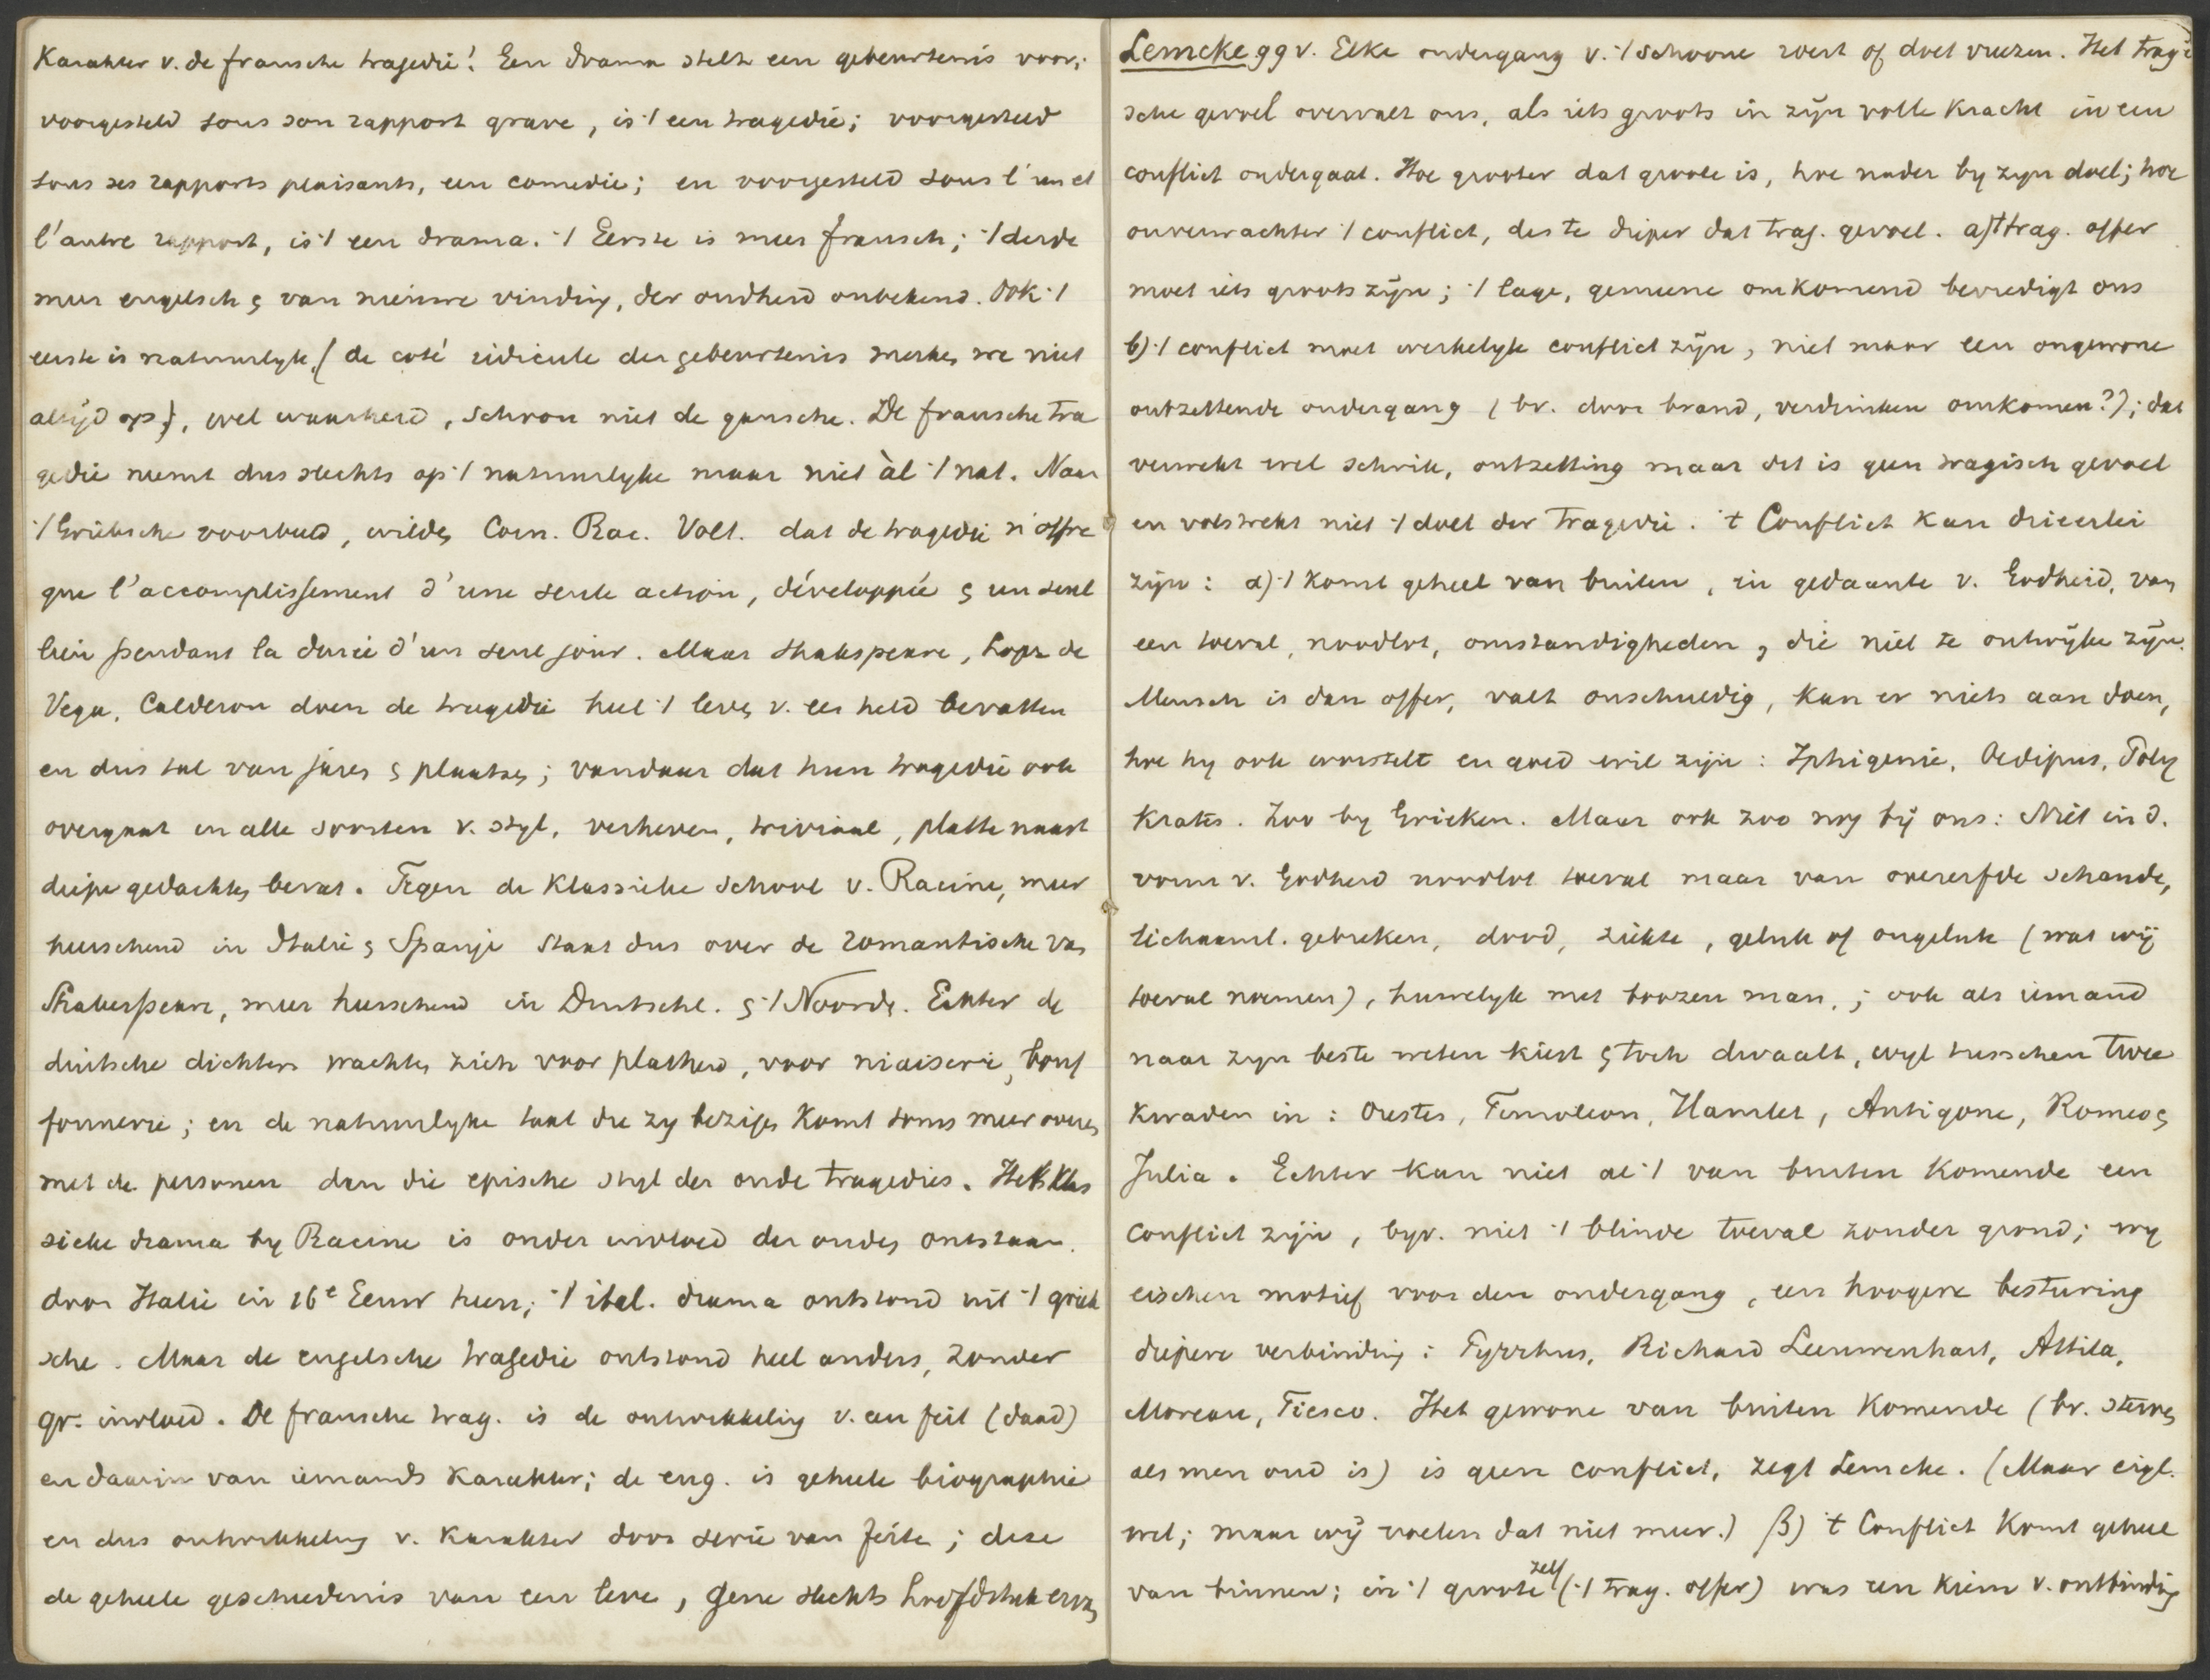 Karakter v. de fransche tragedie! Een drama stelt een gebeurtenis voor;
voorgesteld sous son rapport grave, is ·/ een tragedie; voorgesteld
sous ses rapports plaisants, een comedie; en voorgesteld sous l'un et
l'autre rapport, is ·/ een drama. ·/ Eerste is meer fransch; ·/ derde
meer engelsch ς van nieuwe vinding, der oudheid onbekend. Ook ·/
eerste is natuurlyk, (de coté ridicule der gebeurtenis merkeς we niet
altijd op), wel waarheid, schoon niet de gansche. De fransche tra
gedie neemt dus slechts op ·/ natuurlyke maar niet àl ·/ nat. Naar
·/ Grieksche voorbeeld, wildeς Corn. Rac. Volt. dat de tragedie n'offre
que l'accomplissement d'une seule action, développée ς un seul
lieu pendant la durée d'un seul jour. Maar Shakspeare, Lope de
Vega, Calderon doen de tragedie heel ·/ leveς v. een held bevatten
en dus tal van jareς ς plaatseς; vandaar dat hun tragedie ook
overgaat in alle soorten v. styl, verheven, triviaal, platte naast
diepe gedachteς bevat. Tegen de Klassieke school v. Racine, meer
heerschend in Italië ς Spanje staat dus over de romantische vaς
Shakespeare, meer heerschend in Duitschl. ς ·/ Noordeς. Echter de
duitsche dichters wachteς zich voor platheid, voor niaiserie, bouf
fonnerie; en de natuurlyke taal die zy bezigeς komt soms meer overeς
met de personen dan die epische styl der oude tragedies. Het klas
sieke drama by Racine is onder invloed der oudeς ontstaan.
door Italië in 16e Eeuw heen; ·/ ital. drama ontstond uit ·/ griek
sche. Maar de engelsche tragedie ontstond heel anders, zonder
gr. invloed. De fransche trag. is de ontwikkeling v. een feit (daad)
en daarin van iemands karakter; de eng. is geheele biographie
en dus ontwikkeling v. karakter door serie van feite; deze
de geheele geschiedenis van een leve, gene slechts hoofdstuk ervaς
Lemcke ggv. Elke ondergang v. ·/ schoone roert of doet vreezen. Het tragi
sche gevoel overvalt ons, als iets groots in zijn volle kracht in een
conflict ondergaat. Hoe grooter dat groote is, hoe nader by zyn doel; hoe
onverwachter ·/ conflict, des te dieper dat trag. gevoel. a) 't trag. offer
moet iets groots zijn; ·/ lage, gemeene omkomend bevredigt ons
b) ·/ conflict moet werkelyk conflict zijn, niet maar een ongewone
ontzettende ondergang (bv. door brand, verdrinken omkomen?); dat
verwekt wel schrik, ontzetting maar dit is geen tragisch gevoel
en volstrekt niet ·/ doel der Tragedie. 't Conflict kan drieerlei
zijn: α) ·/ komt geheel van buiten, in gedaante v. Godheid, vaς
een toeval, noodlot, omstandigheden, die niet te ontwijke zijn.
Mensch is dan offer, valt onschuldig, kan er niets aan doen,
hoe hy ook worstelt en goed wil zijn: Iphigenie, Oedipus, Poly
krates. Zoo by Grieken. Maar ook zoo nog bij ons: Niet in d.
vorm v. Godheid noodlot toeval maar van overerfde schande,
lichaaml. gebreken, dood, ziekte, geluk of ongeluk (wat wij
toeval noemen), huwelyk met boozen man,; ook als iemand
naar zyn beste weten kiest ς toch dwaalt, wyl tusschen twee
kwaden in: Orestes, Timoleon, Hamlet, Antigone, Romeo ς
Julia. Echter kan niet al ·/ van buiten komende een
conflict zijn, byv. niet ·/ blinde toeval zonder grond; wy
eischen motief voor den ondergang, een hoogere besturing
diepere verbinding: Pyrrhus, Richard Leeuwenhart, Attila,
Moreau, Fiesco. Het gewone van buiten komende (bv. sterveς
als men oud is) is geen conflict, zegt Lemcke. (Maar eigl.
wel; maar wij voelen dat niet meer.) β) 't Conflict komt geheel
van binnen; in ·/ groote zelf (·/ trag. offer) was een kiem v. ontbinding